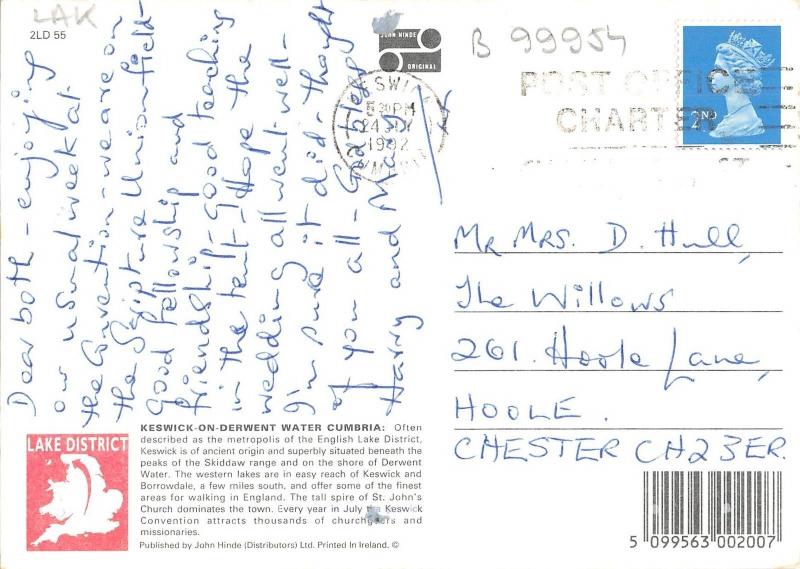 LAK
2LD 55
JOHN HINDE
ORIGINAL
B 99954
KESWICK
5.30PM
24 JLY
1992
POST OFFICE
CHARTER
2ND
Dear both - enjoying
our usual week at
the Convention - we are on
the Scripture Union field -
Good fellowship and
friendship - Good teaching
in the tent - Hope the
wedding all went well -
I'm sure it did - thought
of you all - God bless
Harry and Mary
Mr Mrs. D. Hull,
The Willows
261. Hoole Lane,
HOOLE.
CHESTER CH23ER.
LAKE DISTRICT
KESWICK-ON-DERWENT WATER CUMBRIA: Often
described as the metropolis of the English Lake District,
Keswick is of ancient origin and superbly situated beneath the
peaks of the Skiddaw range and on the shore of Derwent
Water. The western lakes are in easy reach of Keswick and
Borrowdale, a few miles south, and offer some of the finest
areas for walking in England. The tall spire of St. John's
Church dominates the town. Every year in July the Keswick
Convention attracts thousands of churchgoers and
missionaries.
Published by John Hinde (Distributors) Ltd. Printed In Ireland. ©
5 099563 002007